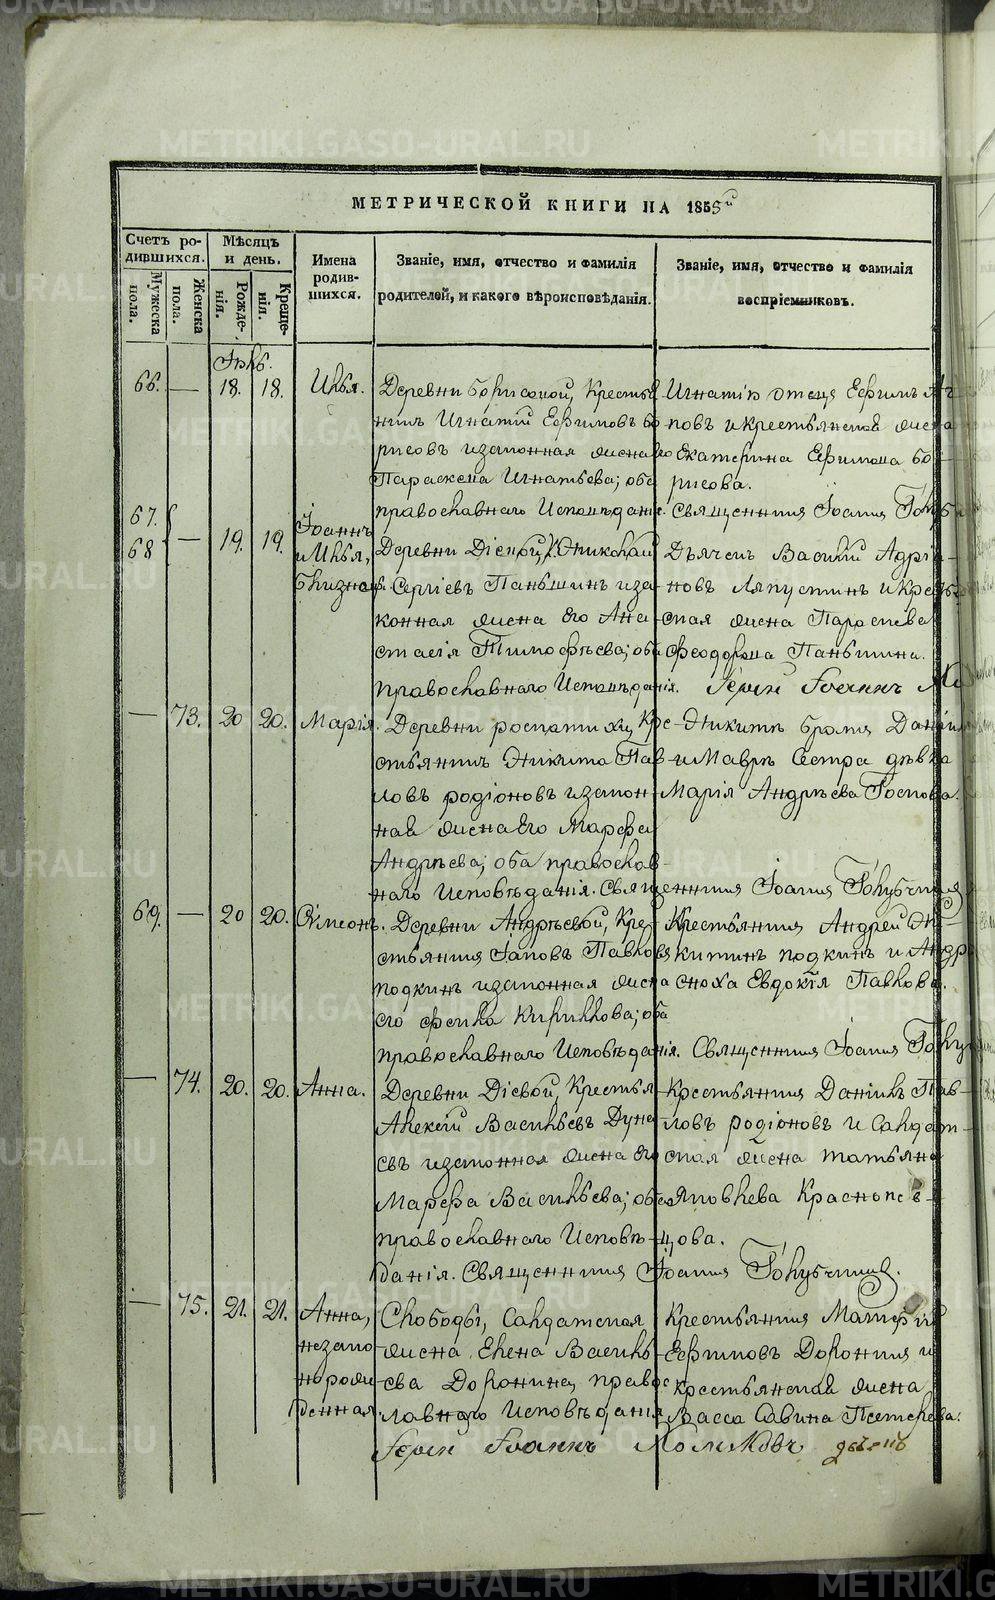 METRIKI.GASO-URAL.RU
МЕТРИЧЕСКОЙ КНИГИ НА 1855й
Счетъ родившихся.
Мужеска пола.
Женска пола.
Мѣсяцъ и день.
Рожденія.
Крещенія.
Имена родившихся.
Званіе, имя, отчество и фамилія
родителей, и какого вѣроисповѣданія.
Званіе, имя, отчество и фамилія
воспріемниковъ.
66. — 18. 18. Илья.
Деревни Борисовой, Крестья
нинъ Игнатій Ефимовъ Бо
рисовъ и законная жена его
Параскева Игнатьева; оба
православнаго Исповѣданія.
Игнатія отецъ Ефимъ
повъ и крестьянская жена
Екатерина Ефимова Бо
рисова.
Священникъ Іоаннъ
67. 68 — 19. 19. Іоаннъ
и Илья,
близнецы
Деревни Діевой, Николай
Сергіевъ Паньшинъ и за
конная жена его Ана
стасія Тимофѣева; оба
православнаго Исповѣданія.
Дьячекъ Василій Адріа
новъ Ляпустинъ и кресть
ская жена Параскева
Феодорова Паньшина.
Іерей Іоаннъ
— 73. 20 20. Марія.
Деревни Кре
стьянинъ Никита Пав
ловъ родіоновъ и закон
ная жена его Марфа
Андрѣева; оба православ
наго Исповѣданія.
Никитѣ братъ Даніилъ
и Маврѣ Сестра дѣвка
Марія Андрѣева
Священникъ Іоаннъ
69. — 20 20. Сѵмеонъ.
Деревни Андрѣевой, Кре
стьянинъ Іаковъ Павловъ
подкинъ и законная жена
его Кирилова; оба
православнаго Исповѣданія.
Крестьянинъ Андрей Ни
китинъ подкинъ и Андр
сноха Евдокія Павлова.
Священникъ Іоаннъ
— 74. 20. 20. Анна.
Деревни Діевой, Крестья
Алексій Васильевъ Дуна
евъ и законная жена его
Марфа Васильева; оба
православнаго Исповѣ
данія.
Крестьянинъ Даніилъ Пав
ловъ родіоновъ и Салдат
ская жена татьяна
Яковлева Краснопѣв
цова.
Священникъ Іоаннъ
— 75. 21. 21. Анна,
незако
норож
денная.
Слободы, Салдатская
жена Елена Василь
ева Доронина, правос
лавнаго Исповѣданія
Крестьянинъ
Ефимовъ Доронинъ и
крестьянская жена
Васса Савина
Іерей Іоаннъ